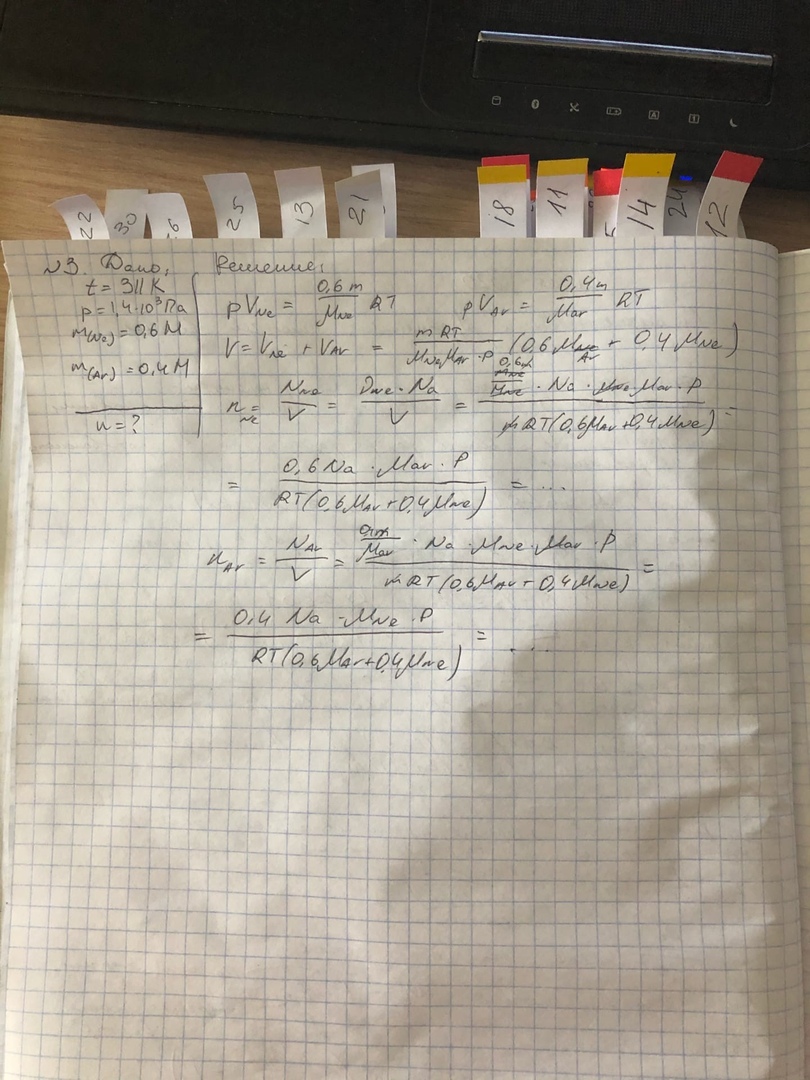 22 30 26 25 13 21 18 11 5 14 24 12
A 1
№3. Дано; Решение;
t = 311 K
p = 1,4·10³ Па
m(Ne) = 0,6 M
m(Ar) = 0,4 M
n = ?
pV_Ne = 0,6 m / μ_Ne RT pV_Ar = 0,4 m / μ_Ar RT
V = V_Ne + V_Ar = m RT / μ_Ne μ_Ar · p (0,6 μ_Ar + 0,4 μ_Ne)
n_Ne = N_Ne / V = ν_Ne · Na / V = 0,6m / μ_Ne · Na · μ_Ne · μ_Ar · p / m RT (0,6 μ_Ar + 0,4 μ_Ne) =
= 0,6 Na · μ_Ar · p / RT (0,6 μ_Ar + 0,4 μ_Ne) = ...
n_Ar = N_Ar / V = 0,4m / μ_Ar · Na · μ_Ne · μ_Ar · p / m RT (0,6 μ_Ar + 0,4 μ_Ne) =
= 0,4 Na · μ_Ne · p / RT (0,6 μ_Ar + 0,4 μ_Ne) = ....